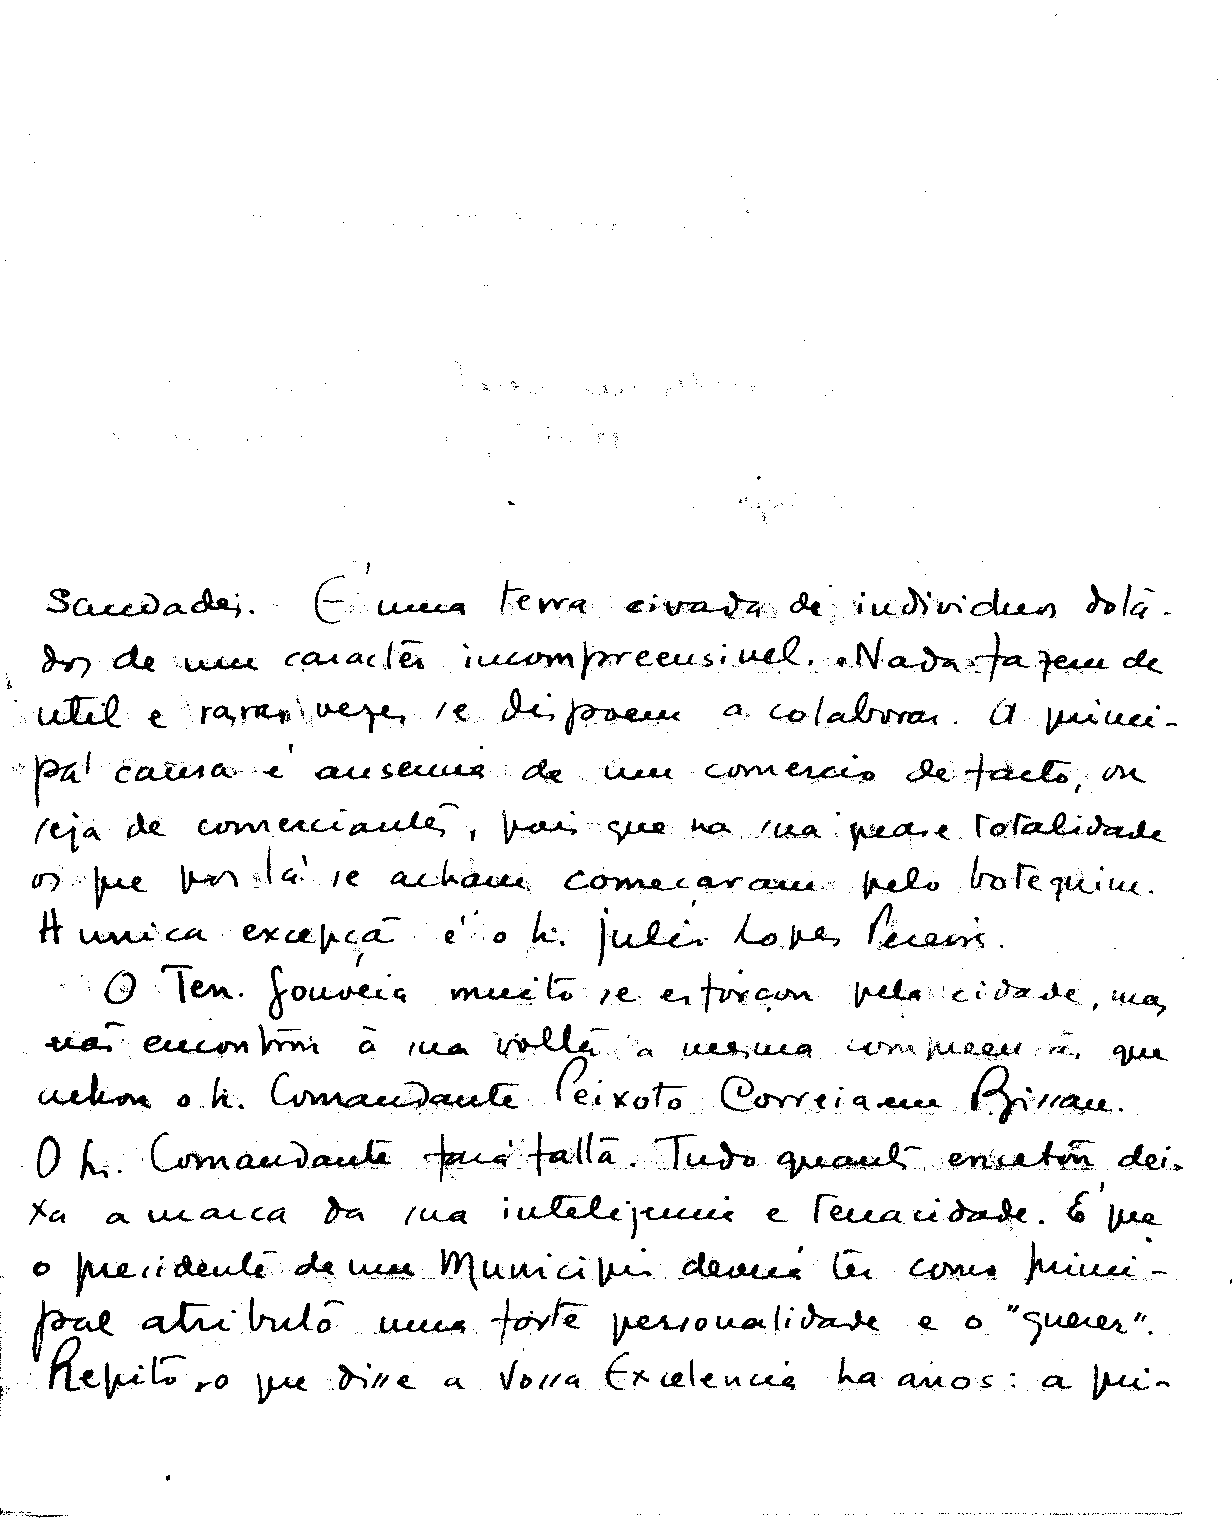 Saudades. É uma terra eivada de individuos dotá-
dos de um caractér incompreensivel. Nada fazem de
util e raras vezes se dispoem a colaborar. A princi-
pal causa é ausencia de um comercio de facto, ou
seja de comerciantes, pois que na sua quase totalidade
os que por lá se acham começaram pelo botequim.
A unica excepção é o Sr. Julio Lopes Pereira.
O Ten. Gouveia muito se esforçou pela cidade, mas
não encontrou à sua volta a mesma compreensão que
achou o Sr. Comandante Peixoto Correia em Bissau.
O Sr. Comandante fará falta. Tudo quanto encetou, dei-
xa a marca da sua inteligencia e tenacidade. É que
o presidente de um Municipio deverá ter como princi-
pal atributo uma forte personalidade e o "querer".
Repito o que disse a Vossa Excelencia ha anos: a pri-